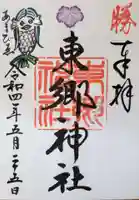 勝
奉拝
東郷神社
あまびゑ
令和四年五月二十五日